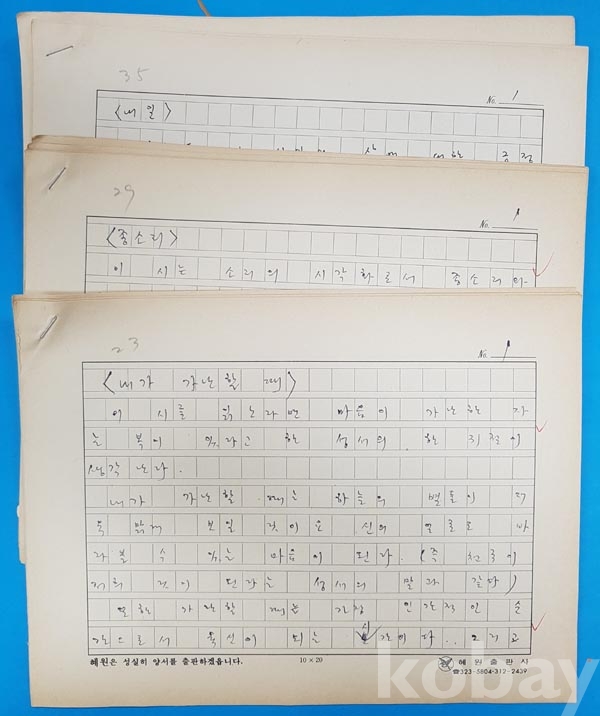 35
No. 1
〈내일〉
29
No. 1
〈종소리〉
이 시는 소리의 시각화로서 종소리의
23
No. 1
〈내가 가난할 때〉
이 시를 읽노라면 마음이 가난한 자
는 복이 있나니 하는 성서의 한 귀절이
생각난다.
내가 가난할 때는 하늘의 별들이 더
욱 밝게 보일 것이요 신의 얼굴도 바
라볼 수 있는 마음이 된다. (즉 천국이
저희 것이 된다는 성서의 말과 같다)
또한 가난할 때는 가장 인간적인 순
간으로서 되는 순간이다. 그리고
혜원은 성실히 양서를 출판하겠읍니다.
10×20
혜원출판사
☎323-5804·312-2439
kobay